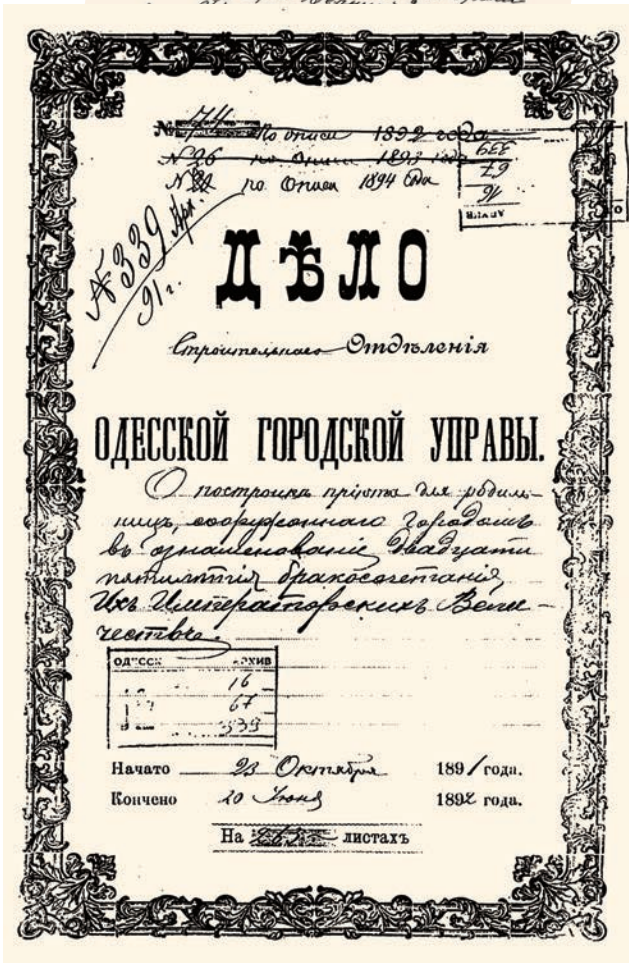 № 74 по описи 1892 года
№ 26 по Описи 1893 года
№ по Описи 1894 года
№ 339 Арх.
91 г.
339
67
16
ДѢЛО
Строительнаго Отдѣленія
ОДЕССКОЙ ГОРОДСКОЙ УПРАВЫ.
О постройкѣ пріюта для родиль-
ницъ, сооруженнаго городомъ
въ ознаменованіе двадцати
пятилѣтія бракосочетанія
Ихъ Императорскихъ Вели-
чествъ.
ОДЕССК АРХИВ
16
67
339
Начато 23 Октября 1891 года.
Кончено 20 Іюня 1892 года.
На листахъ